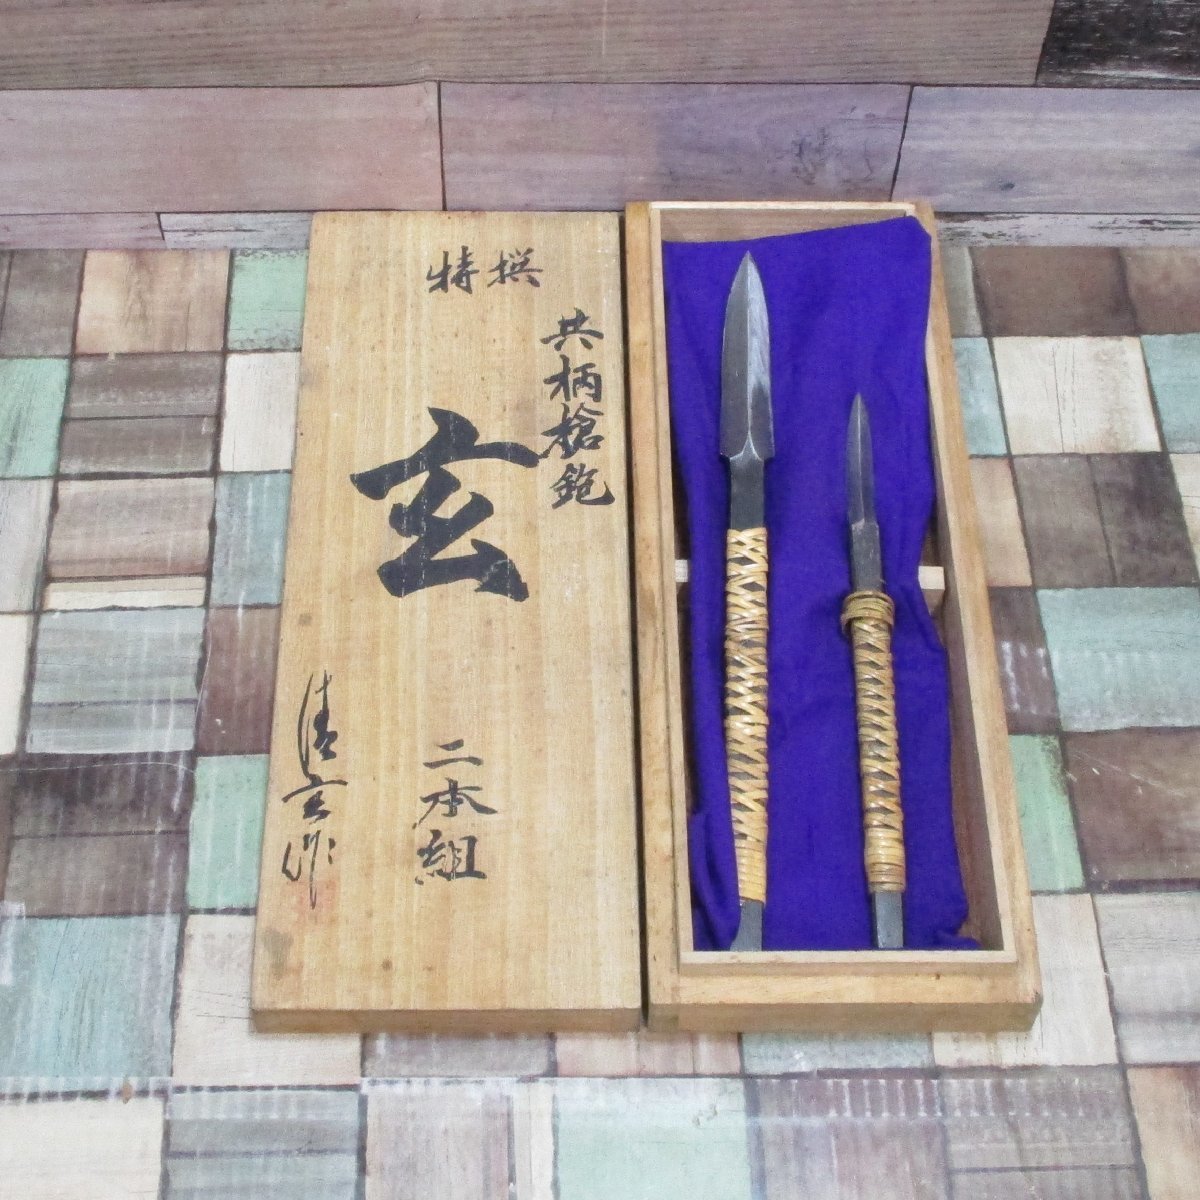 特撰
共柄槍鉋
玄
二本組
清玄作